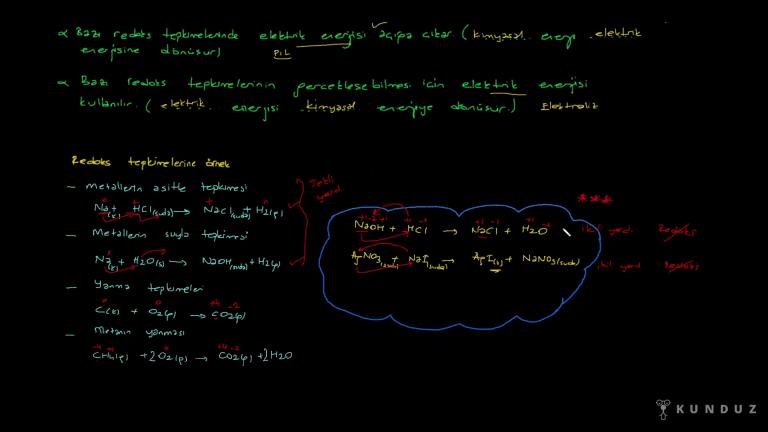 α Bazı redoks tepkimelerinde elektrik enerjisi açığa çıkar. (kimyasal enerji elektrik
enerjisine dönüşür) PİL
α Bazı redoks tepkimelerinin gerçekleşebilmesi için elektrik enerjisi
kullanılır. (elektrik enerjisi kimyasal enerjiye dönüşür.) Elektroliz
Redoks tepkimelerine örnek
— Metallerin asitle tepkimesi
Na(k) + HCl(suda) → NaCl(suda) + H2(g)
— Metallerin suyla tepkimesi
Na(k) + H2O(s) → NaOH(suda) + H2(g)
— Yanma tepkimeleri
C(k) + O2(g) → CO2(g)
— Metanın yanması
CH4(g) + 2O2(g) → CO2(g) + 2H2O
tekli yerd.
***
NaOH + HCl → NaCl + H2O ikil yerd. Redoks
AgNO3(suda) + NaI(suda) → AgI(k) + NaNO3(suda) ikil yerd Redoks
KUNDUZ